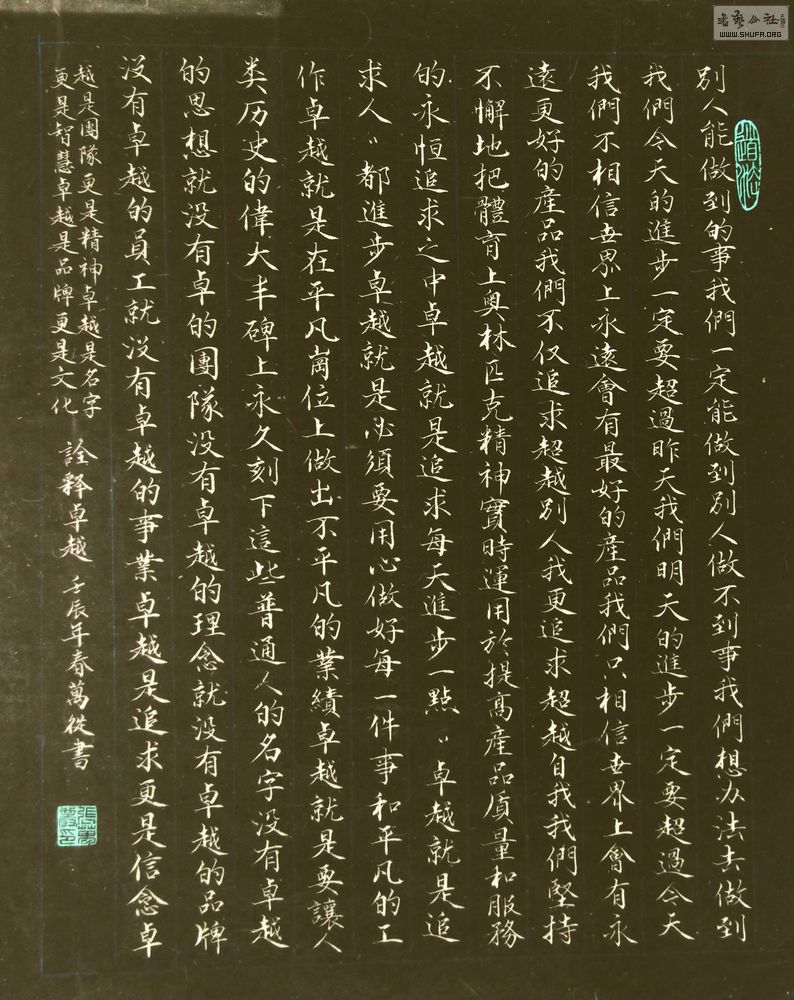 別人能做到的事我們一定能做到別人做不到事我們想办法去做到
我們今天的進步一定要超過昨天我們明天的進步一定要超過今天
我們不相信世界上永遠會有最好的產品我們只相信世界上會有永
遠更好的産品我們不仅追求超越別人我更追求超越自我我們堅持
不懈地把體育上奥林匹克精神實時運用於提高產品质量和服務
的永恒追求之中卓越就是追求每天進步一點〃卓越就是追
求人〃都進步卓越就是必須要用心做好每一件事和平凡的工
作卓越就是在平凡崗位上做出不平凡的業績卓越就是要讓人
类历史的偉大丰碑上永久刻下這些普通人的名字没有卓越
的思想就没有卓的團隊没有卓越的理念就没有卓越的品牌
没有卓越的員工就没有卓越的事業卓越是追求更是信念卓
越是團隊更是精神卓越是名字
更是智慧卓越是品牌更是文化
詮释卓越 壬辰年春萬從書
書藝公社
WWW.SHUFA.ORG